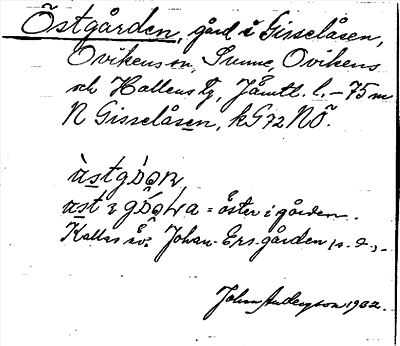 Östgården, gård i Gisselåsen,
Ovikens sn, Sunne, Ovikens
och Hallens tg, Jämtl. l. - 75 m
N Gisselåsen, kG72NÖ.
= öster i gården.
Kallas äv. Johan-Ersgården
Johan Anderzson 1932.